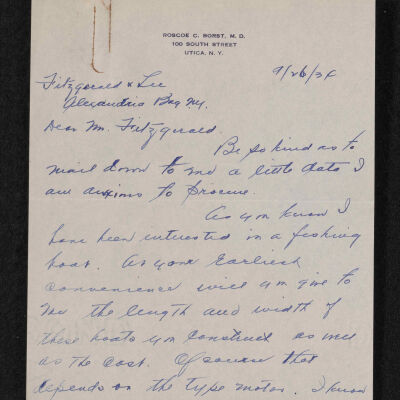 ROSCOE C. BORST, M. D.
100 SOUTH STREET
UTICA, N. Y.
9/26/34
Fitzgerald & Lee
Alexandria Bay N.Y.
Dear Mr. Fitzgerald.
Be so kind as to
mail down to me a little data I
am anxious to procure.
As you know I
have been interested in a fishing
boat. At your earliest
convenience will you give to
me the length and width of
these boats you construct as well
as the cost. Of course that
depends on the type motor. I know